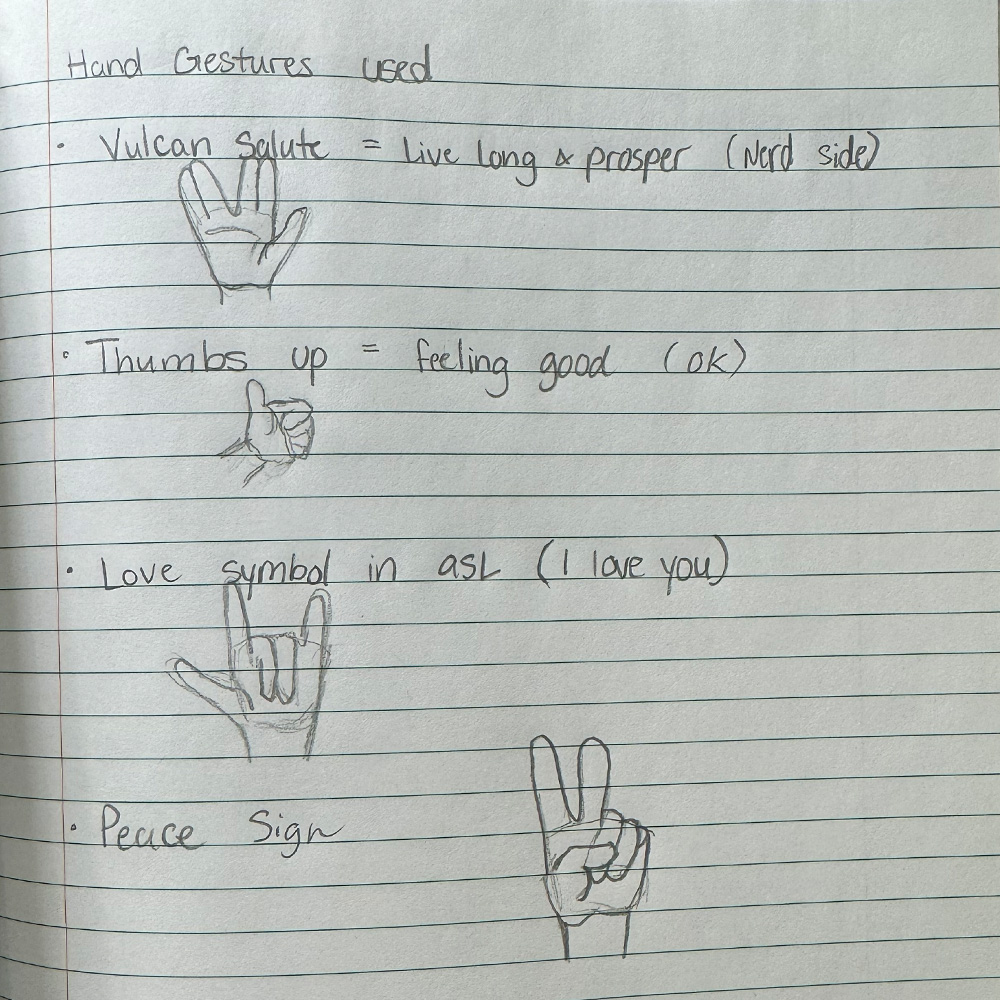 Hand Gestures used
• Vulcan Salute = Live long & prosper (Nerd side)
• Thumbs up = feeling good (ok)
• Love symbol in ASL (I love you)
• Peace Sign